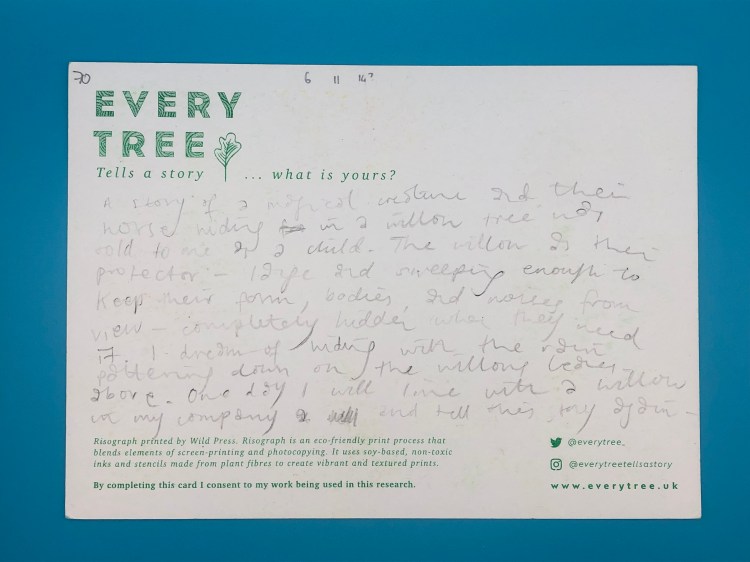 70
6 11 14?
EVERY
TREE
Tells a story ... what is yours?
A story of a magical creature and their
horse hiding in a willow tree was
told to me as a child. The willow as their
protector – large and sweeping enough to
keep their form, bodies, and noises from
view – completely hidden when they need
it. I dream of hiding with the rain
pattering down on the willows leaves
above. One day I will live with a willow
my company and tell this story again –
Risograph printed by Wild Press. Risograph is an eco-friendly print process that
blends elements of screen-printing and photocopying. It uses soy-based, non-toxic
inks and stencils made from plant fibres to create vibrant and textured prints.
By completing this card I consent to my work being used in this research.
@everytree_
@everytreetellsastory
www.everytree.uk